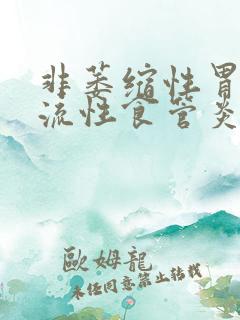 非萎缩性胃
流性食管炎
歐姆龍
未经同意禁止转载